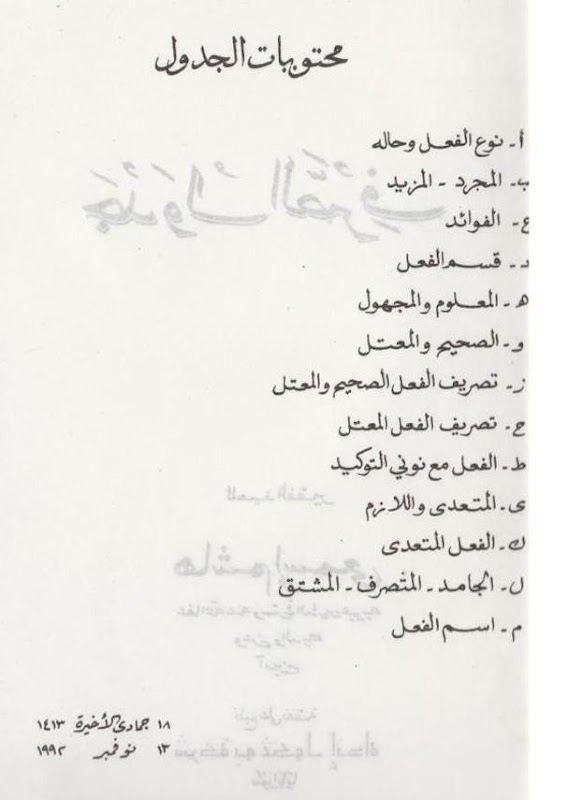 محتويات الجدول
أ- نوع الفعل وحاله
ب- المجرد - المزيد
ج- الفوائد
د- قسم الفعل
ه- المعلوم والمجهول
و- الصحيح والمعتل
ز- تصريف الفعل الصحيح والمعتل
ح- تصريف الفعل المعتل
ط- الفعل مع نوني التوكيد
ى- المتعدى واللازم
ك- الفعل المتعدى
ل- الجامد - المتصرف - المشتق
م- اسم الفعل
١٨ جمادى الأخيرة ١٤١٣
١٣ نوفمبر ١٩٩٢